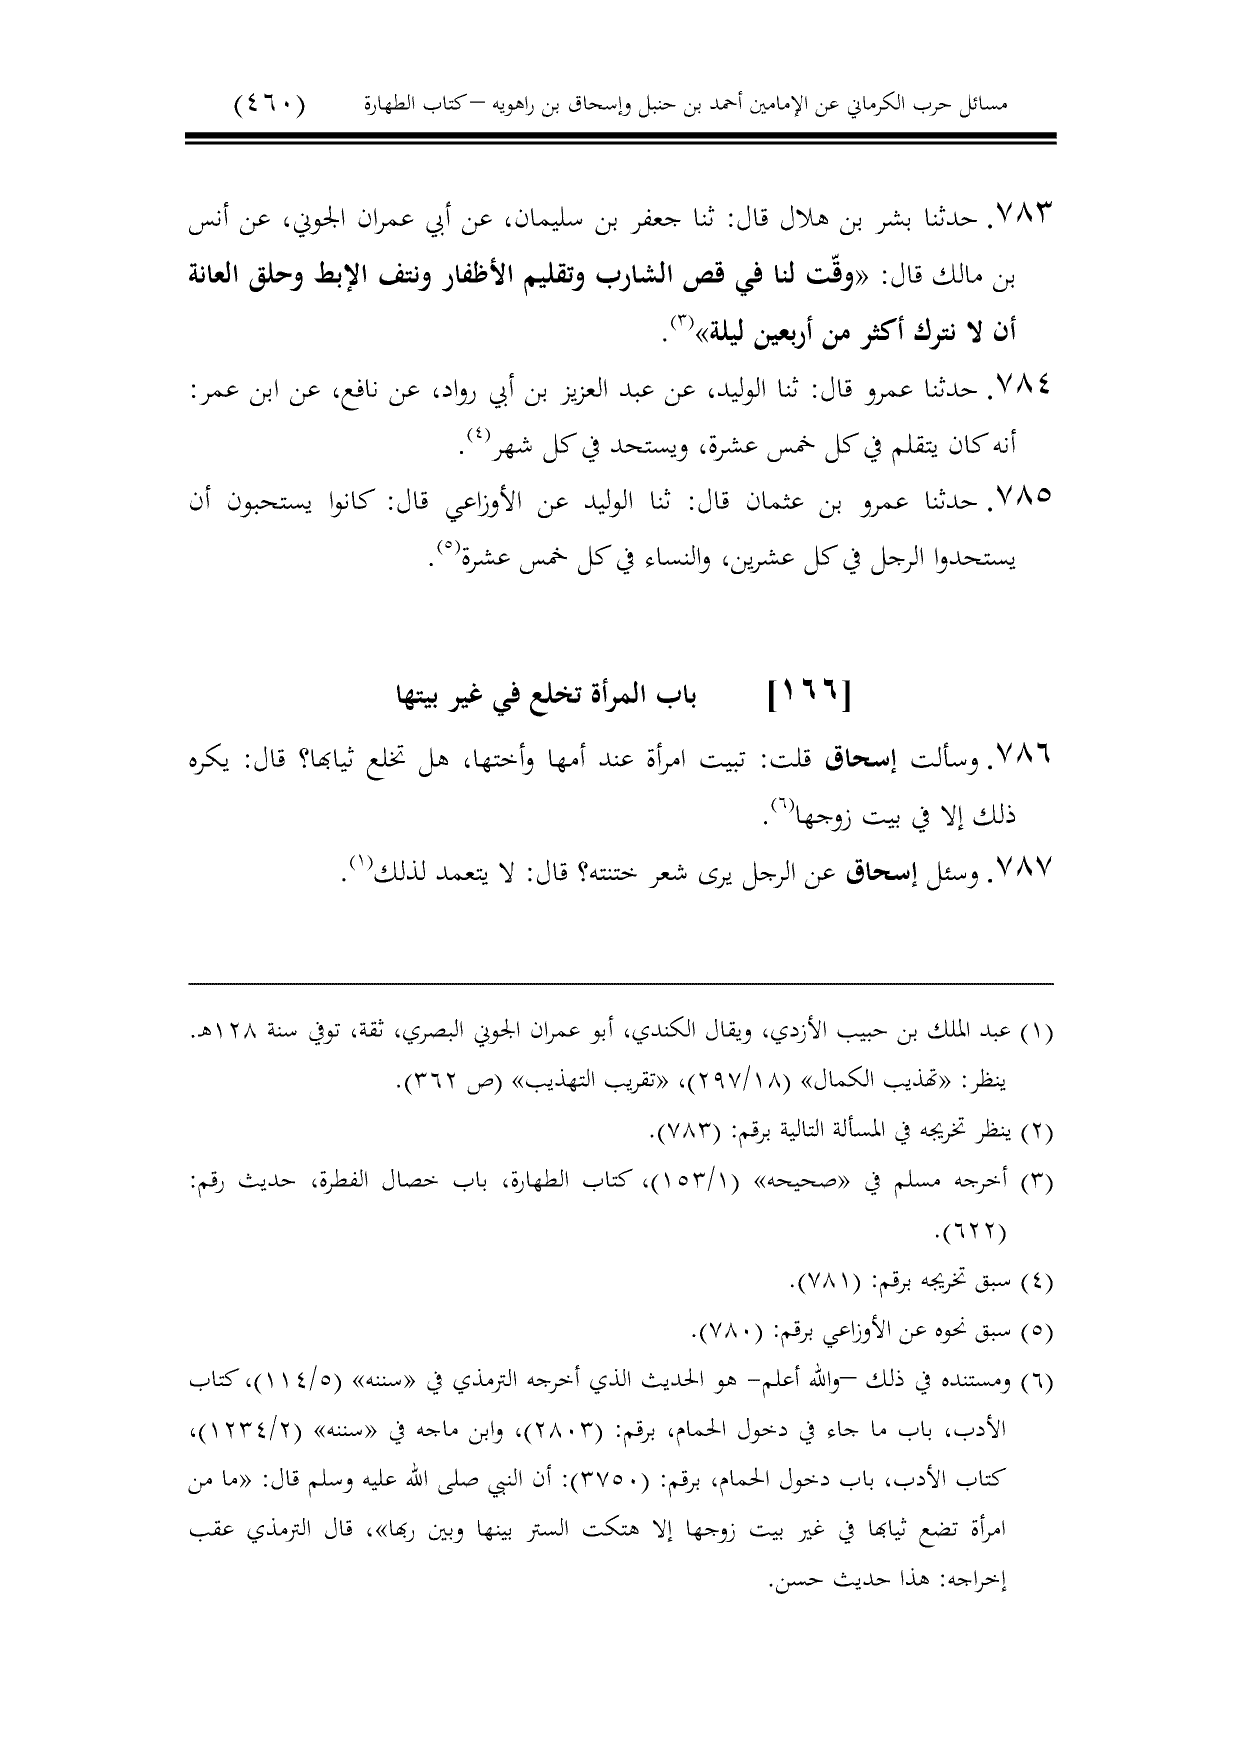 مسائل حرب الكرماني عن الإمامين أحمد بن حنبل وإسحاق بن راهويه –كتاب الطهارة (٤٦٠)
٧٨٣. حدثنا بشر بن هلال قال: ثنا جعفر بن سليمان، عن أبي عمران الجوني، عن أنس
بن مالك قال: «وقّت لنا في قص الشارب وتقليم الأظفار ونتف الإبط وحلق العانة
أن لا نترك أكثر من أربعين ليلة»(٣).
٧٨٤. حدثنا عمرو قال: ثنا الوليد، عن عبد العزيز بن أبي رواد، عن نافع، عن ابن عمر:
أنه كان يتقلم في كل خمس عشرة، ويستحد في كل شهر(٤).
٧٨٥. حدثنا عمرو بن عثمان قال: ثنا الوليد عن الأوزاعي قال: كانوا يستحبون أن
يستحدوا الرجل في كل عشرين، والنساء في كل خمس عشرة(٥).
[١٦٦] باب المرأة تخلع في غير بيتها
٧٨٦. وسألت إسحاق قلت: تبيت امرأة عند أمها وأختها، هل تخلع ثيابها؟ قال: يكره
ذلك إلا في بيت زوجها(٦).
٧٨٧. وسئل إسحاق عن الرجل يرى شعر ختنته؟ قال: لا يتعمد لذلك(١).
(١) عبد الملك بن حبيب الأزدي، ويقال الكندي، أبو عمران الجوني البصري، ثقة، توفي سنة ١٢٨هـ.
ينظر: «تهذيب الكمال» (٢٩٧/١٨)، «تقريب التهذيب» (ص ٣٦٢).
(٢) ينظر تخريجه في المسألة التالية برقم: (٧٨٣).
(٣) أخرجه مسلم في «صحيحه» (١٥٣/١)، كتاب الطهارة، باب خصال الفطرة، حديث رقم:
(٦٢٢).
(٤) سبق تخريجه برقم: (٧٨١).
(٥) سبق نحوه عن الأوزاعي برقم: (٧٨٠).
(٦) ومستنده في ذلك –والله أعلم- هو الحديث الذي أخرجه الترمذي في «سننه» (١١٤/٥)، كتاب
الأدب، باب ما جاء في دخول الحمام، برقم: (٢٨٠٣)، وابن ماجه في «سننه» (١٢٣٤/٢)،
كتاب الأدب، باب دخول الحمام، برقم: (٣٧٥٠): أن النبي صلى الله عليه وسلم قال: «ما من
امرأة تضع ثيابها في غير بيت زوجها إلا هتكت الستر بينها وبين ربها»، قال الترمذي عقب
إخراجه: هذا حديث حسن.